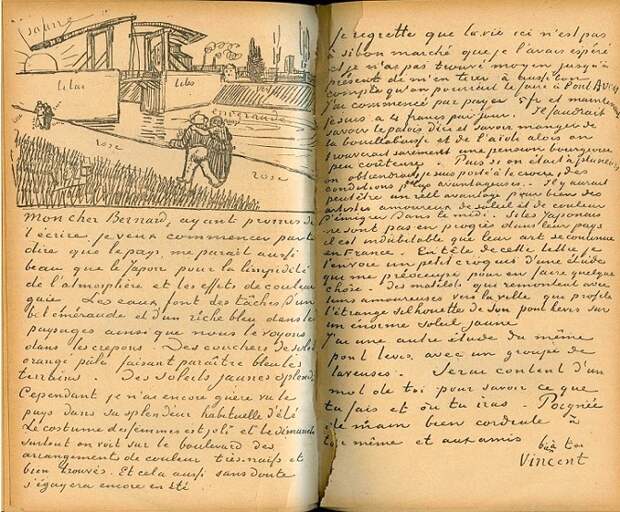 jaune
lilas
lilas
émeraude
rose
rose
Mon cher Bernard, ayant promis de
t'écrire je veux commencer par te
dire que le pays me parait aussi
beau que le Japon pour la limpidité
de l'atmosphère et les effets de couleur
gaie. Les eaux font des tâches d'un
bel éméraude et d'un riche bleu dans les
paysages ainsi que nous le voyons
dans les crepons. Des couchers de soleil
orangé pâle faisant paraître bleu les
terrains. Des soleils jaunes splendides
Cependant je n'ai encore guère vu le
pays dans sa splendeur habituelle d'été
Le costume des femmes est joli et le dimanche
surtout on voit sur le boulevard des
arrangements de couleur très naïfs et
bien trouvés. Et cela aussi sans doute
s'égayera encore en été
Je regrette que la vie ici n'est pas
à si bon marché que je l'avais espéré
et je n'ai pas trouvé moyen jusqu'à
présent de m'en tirer à aussi bon
compte qu'on pourrait le faire à Pont Aven
j'ai commencé par payer 5 fr et maintenant
je suis à 4 francs par jour. Il faudrait
savoir le patois d'ici et savoir manger de
la bouillabaisse et de l'aïoli alors on
trouverait sûrement une pension bourgeoise
peu coûteuse. Puis si on était à plusieurs
on obtiendrait je suis porté à le croire des
conditions plus avantageuses. Il y aurait
peut être un réel avantage pour bien des
artistes amoureux de soleil et de couleur
d'émigrer dans le midi. Si les Japonais
ne sont pas en progrès dans leur pays
il est indubitable que leur art se continue
en France. En tête de cette lettre je
t'envoie un petit croquis d'une étude
qui me préoccupe pour en faire quelque
chose. Des matelots qui remontent avec
leurs amoureuses vers la ville qui profile
l'étrange silhouette de son pont levis sur
un énorme soleil jaune
J'ai une autre étude du même
pont levis avec un groupe de
laveuses. Serai content d'un
mot de toi pour savoir ce que
tu fais et où tu iras. Poignée
de main bien cordiale à
toi même et aux amis
b. à toi
Vincent